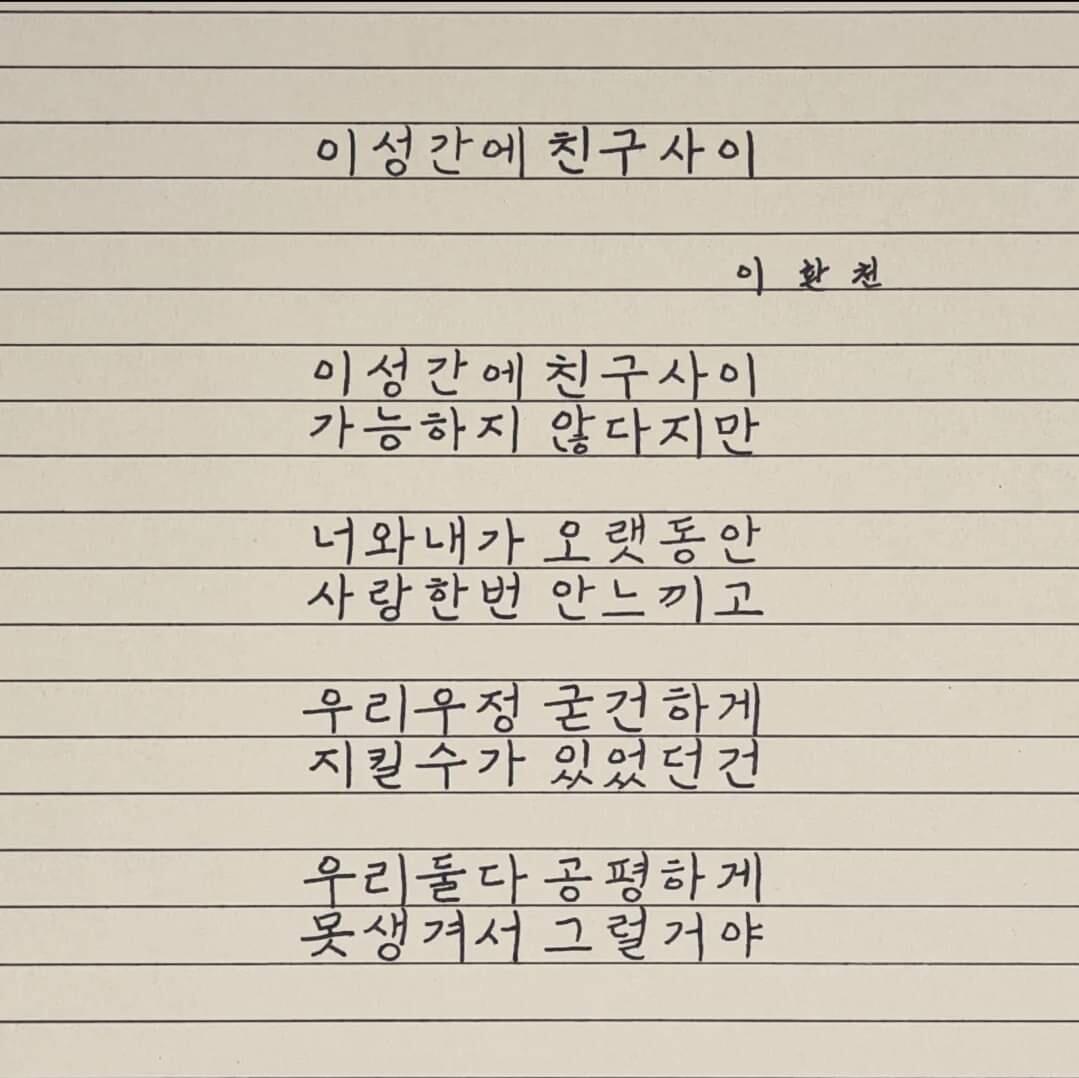 이성간에 친구사이
이환천
이성간에 친구사이
가능하지 않다지만
너와내가 오랫동안
사랑한번 안느끼고
우리우정 굳건하게
지킬수가 있었던건
우리둘다 공평하게
못생겨서 그럴거야